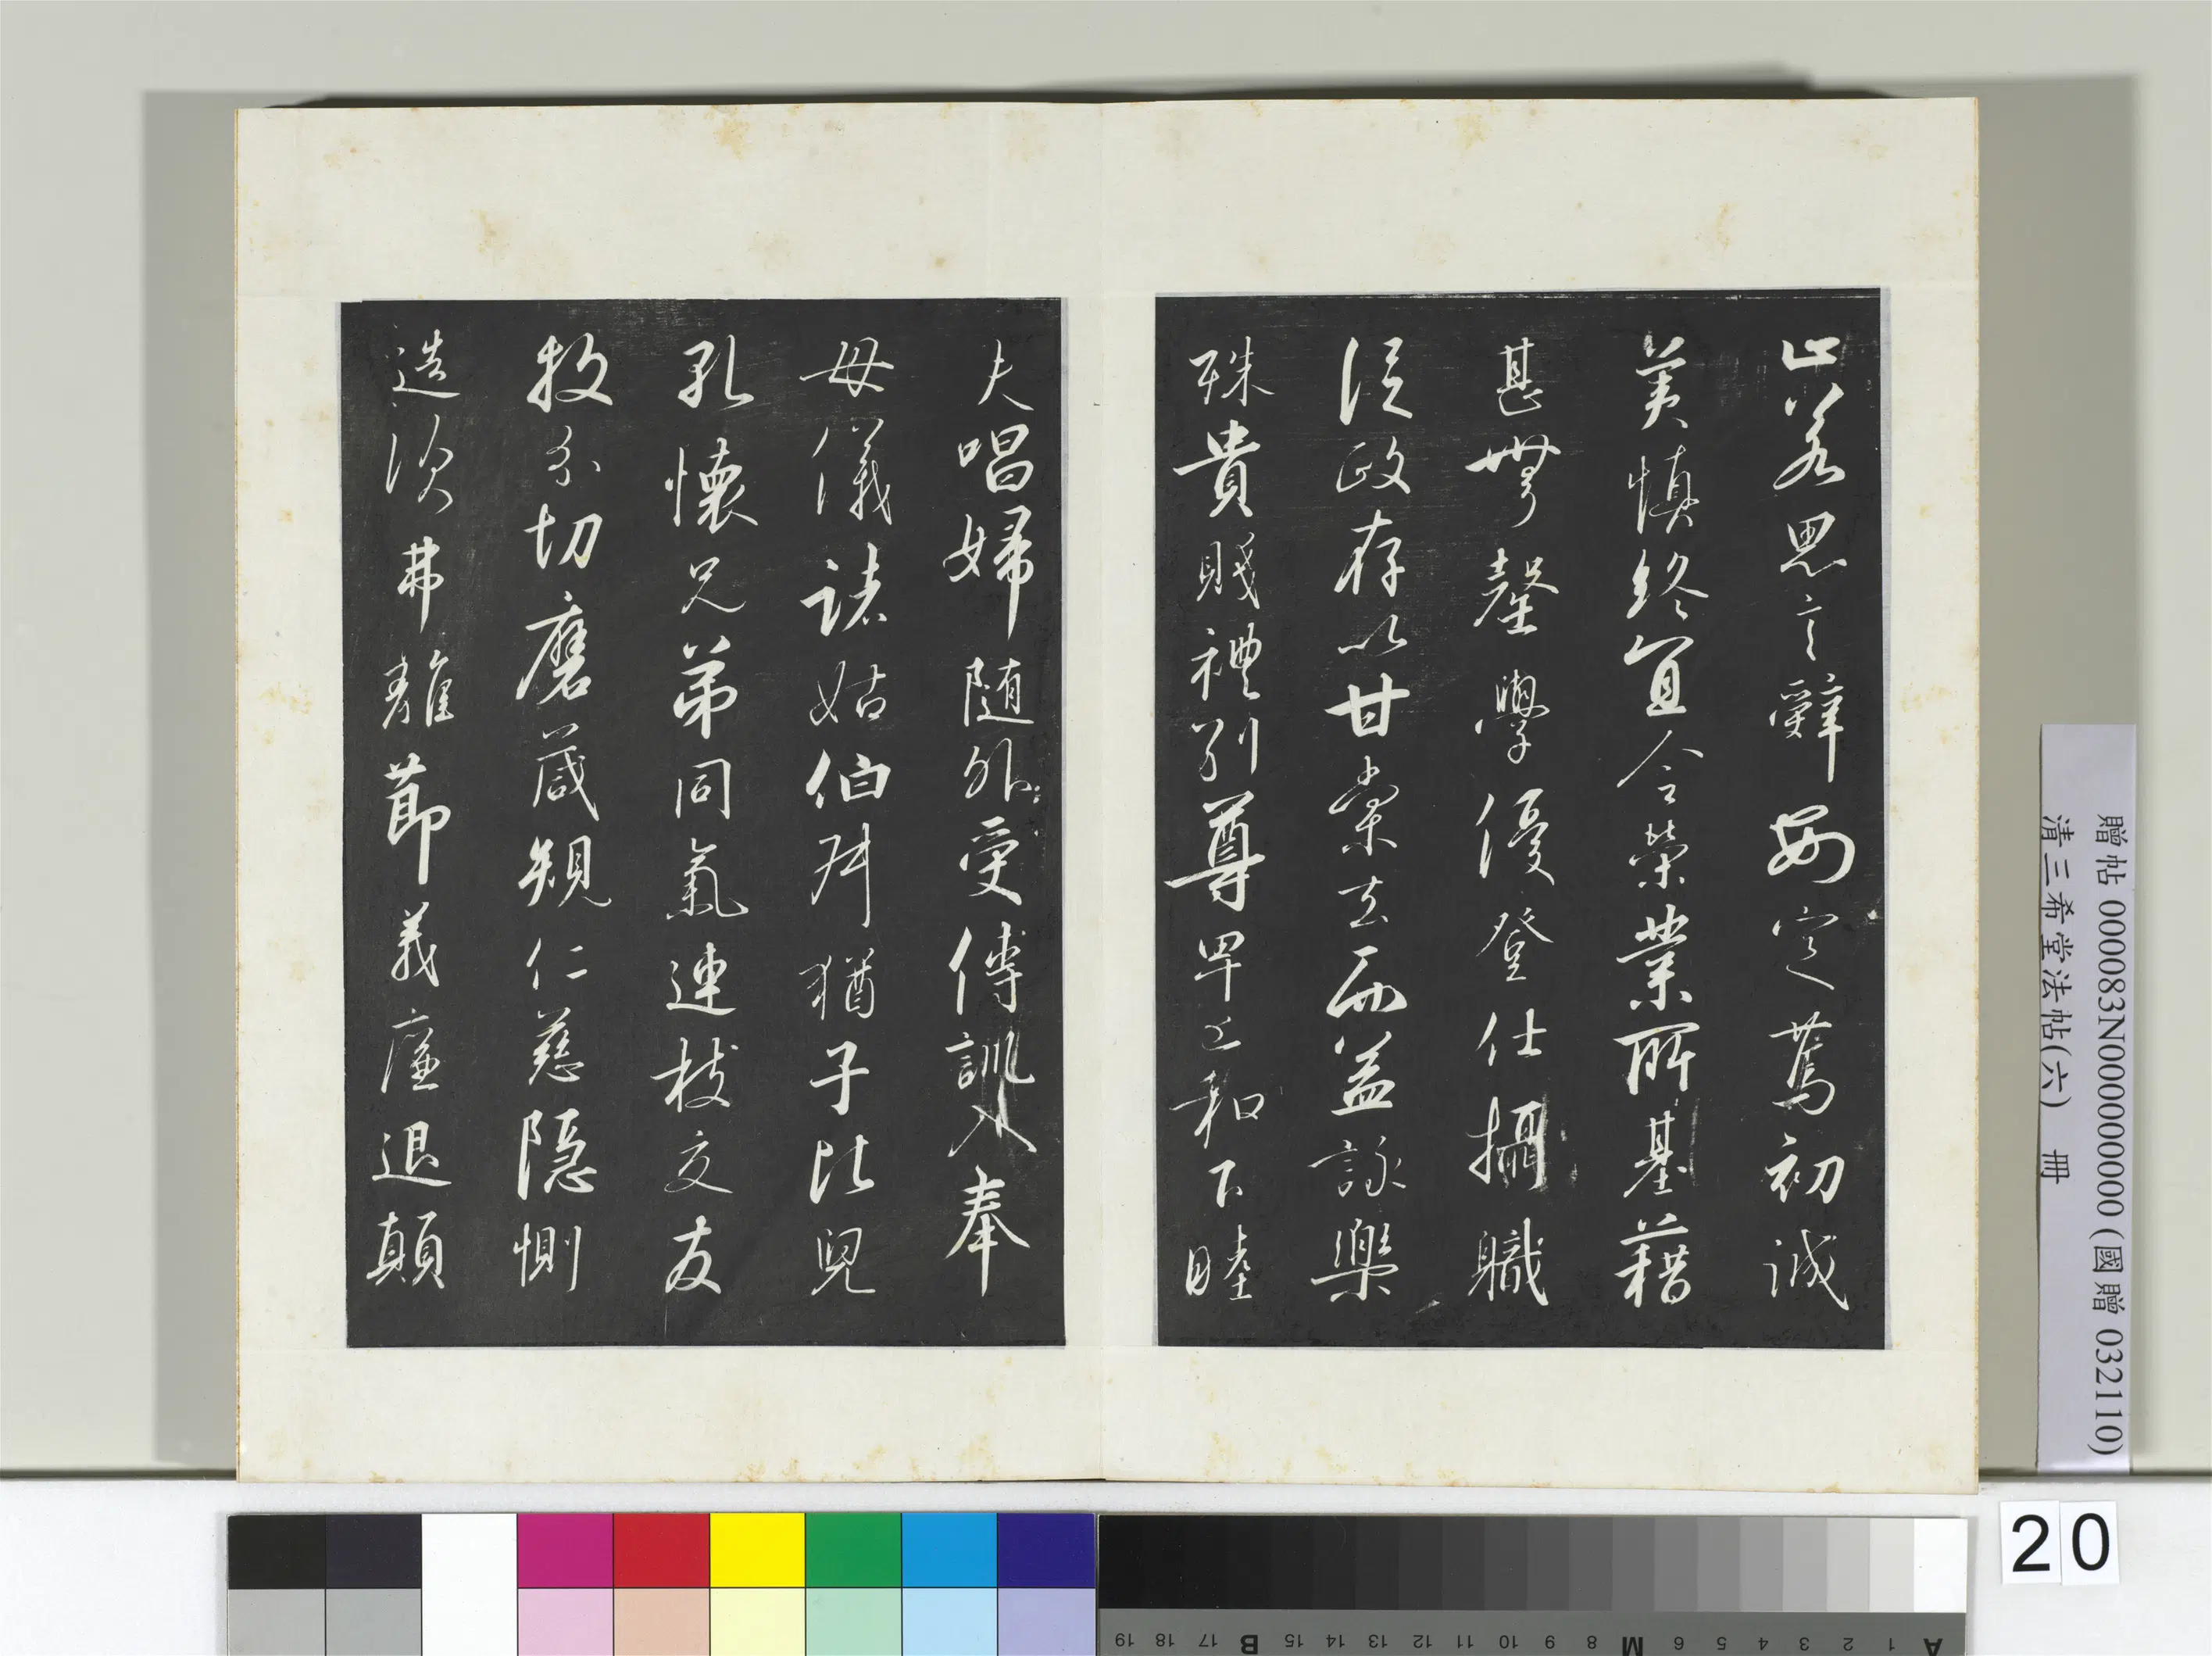 止若思言辭安定篤初誠
美慎終宜令榮業所基藉
甚無竟學優登仕攝職
從政存以甘棠去而益詠樂
殊貴賤禮別尊卑上和下睦
夫唱婦隨外受傅訓入奉
母儀諸姑伯叔猶子比兒
孔懷兄弟同氣連枝交友
投分切磨箴規仁慈隱惻
造次弗離節義廉退顛
贈帖 000083N000000000 (國贈 032110)
清三希堂法帖(六) 冊
20
A 1 2 3 4 5 6 M 8 9 10 11 12 13 14 15 B 17 18 19